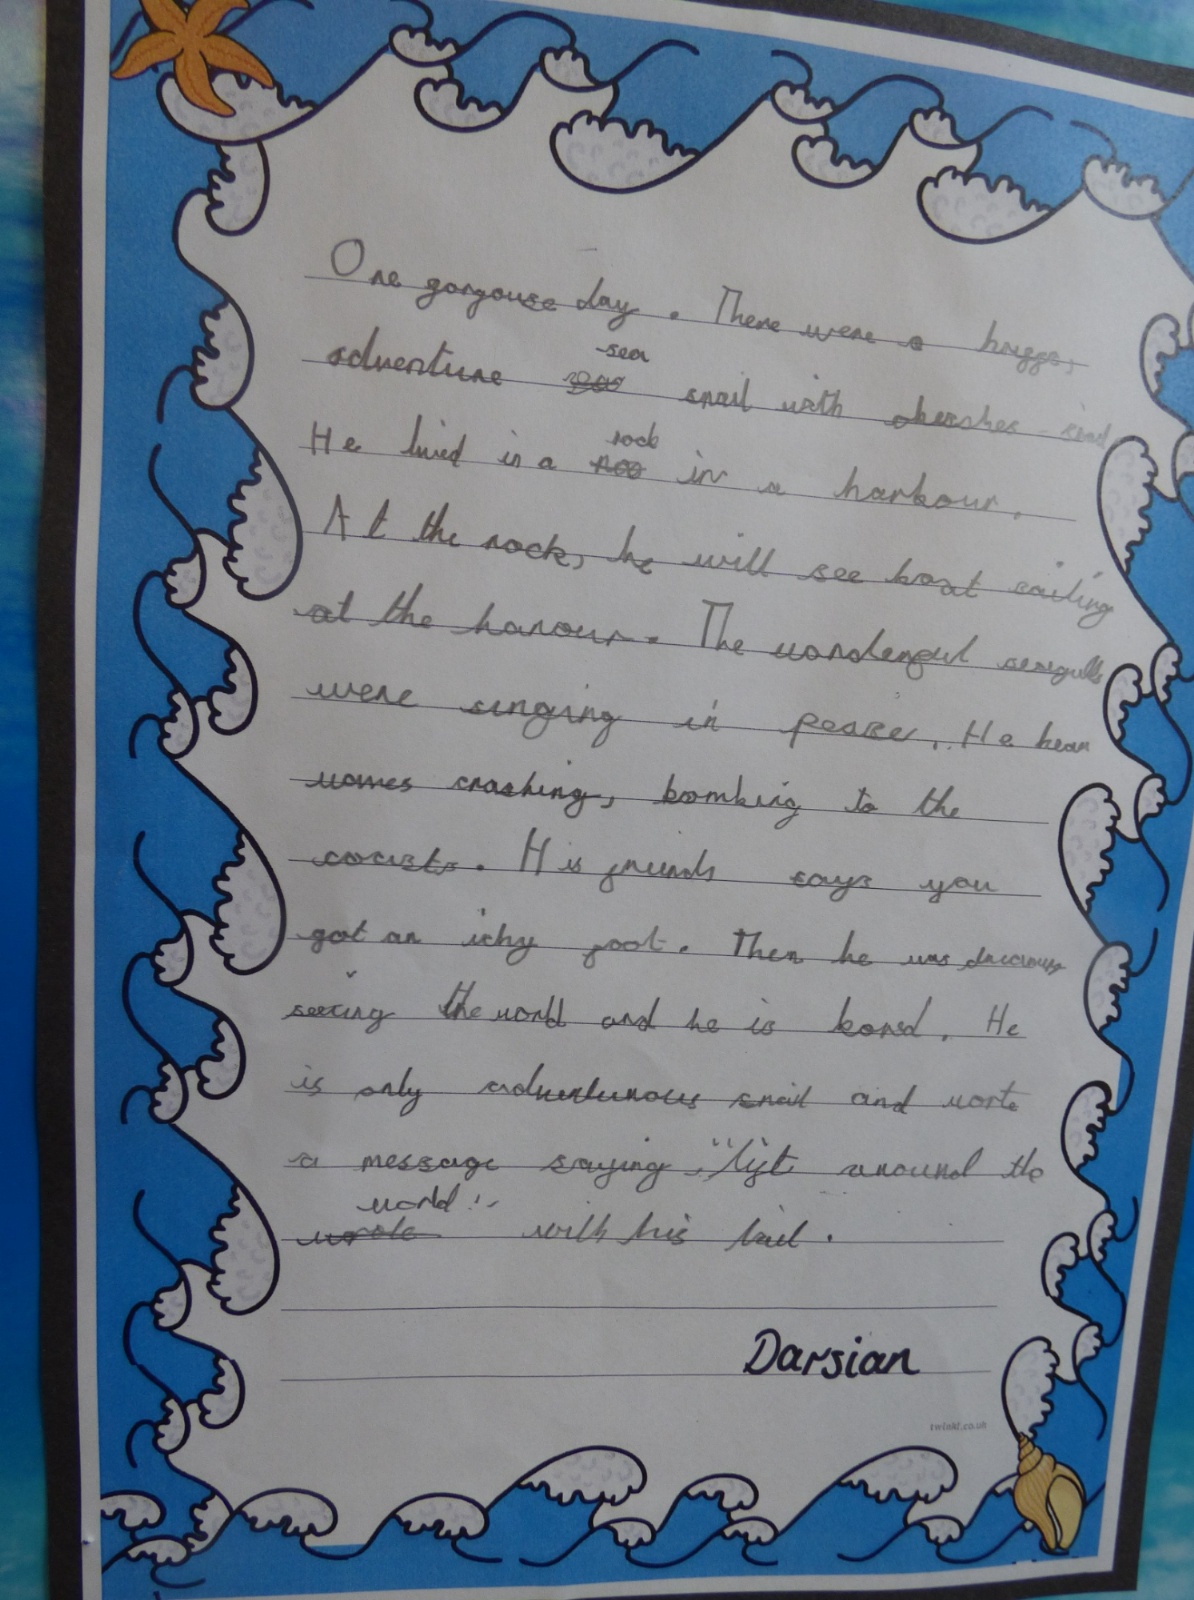 One gorgouse day. There were a
adventure sea snail with
He lived in a rock in a harbour.
At the rock, he will see boat sailing
at the harour. The wonderful seagulls
were singing in peace. He hear
crashing, bombing to the
His says you
got an ichy foot. Then he was
seeing the world and he is bored. He
is only snail and
a message saying, "lift around the
world!" with his tail.
Darsian
twinkl.co.uk